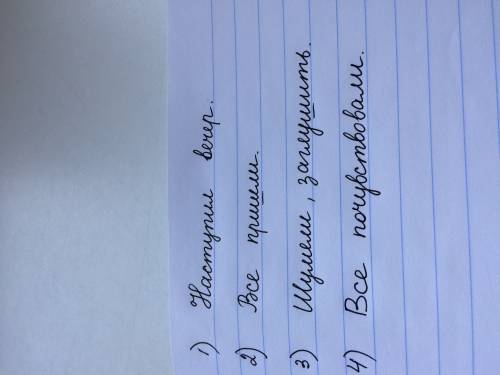 1) Наступил вечер.
2) Все пришли.
3) Шумели, заглушить.
4) Все почувствовали.